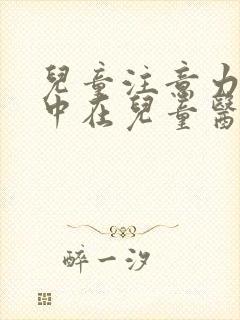 兒童注意力
中在兒童醫
醉一汐